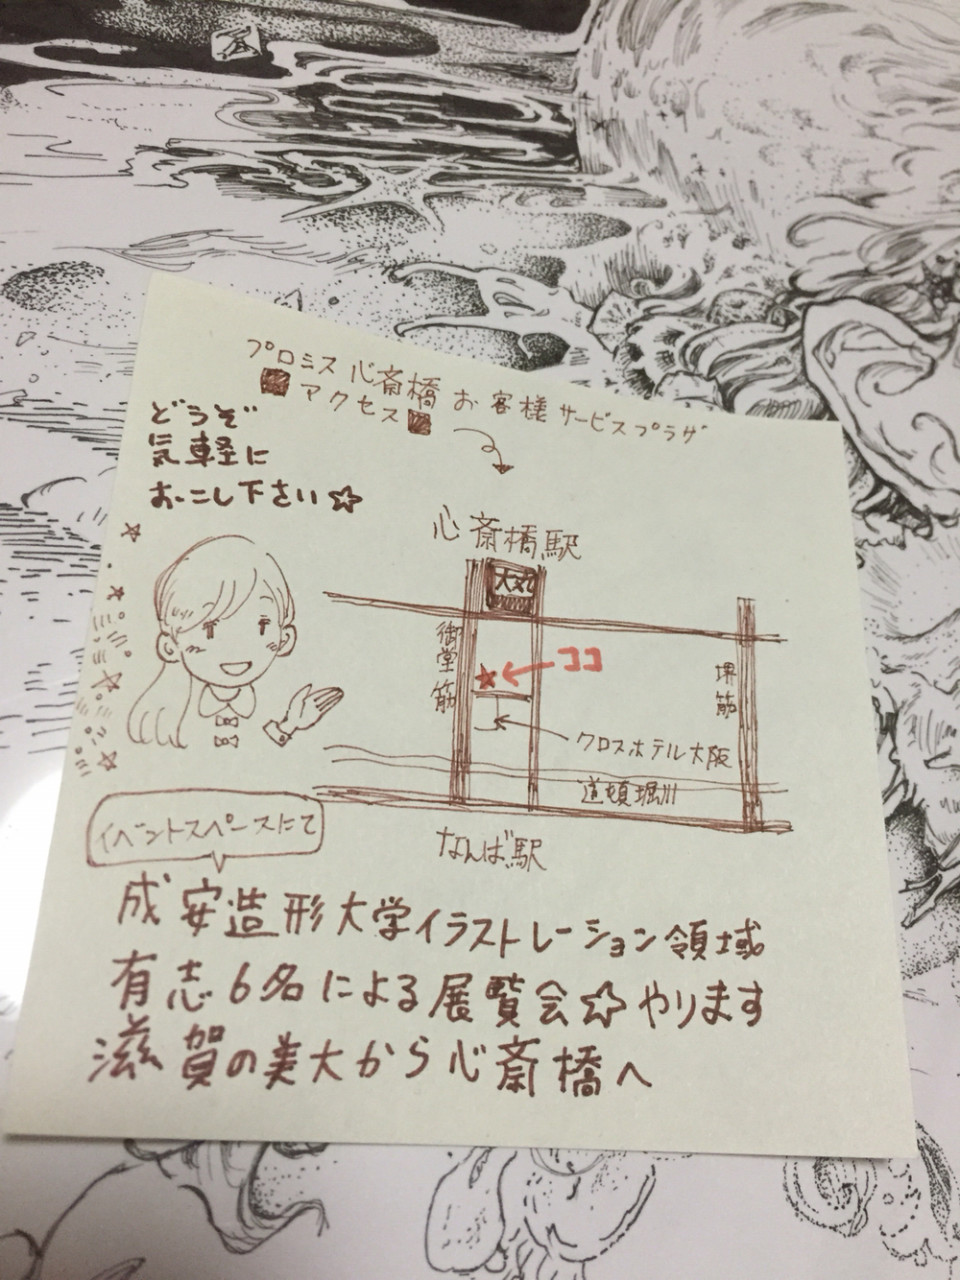 プロミス 心斎橋 お客様 サービスプラザ
アクセス
どうぞ
気軽に
おこし下さい☆
心斎橋駅
大丸
御堂筋
ココ
堺筋
クロスホテル大阪
道頓堀川
なんば駅
イベントスペースにて
成安造形大学イラストレーション領域
有志6名による展覧会☆やります
滋賀の美大から心斎橋へ